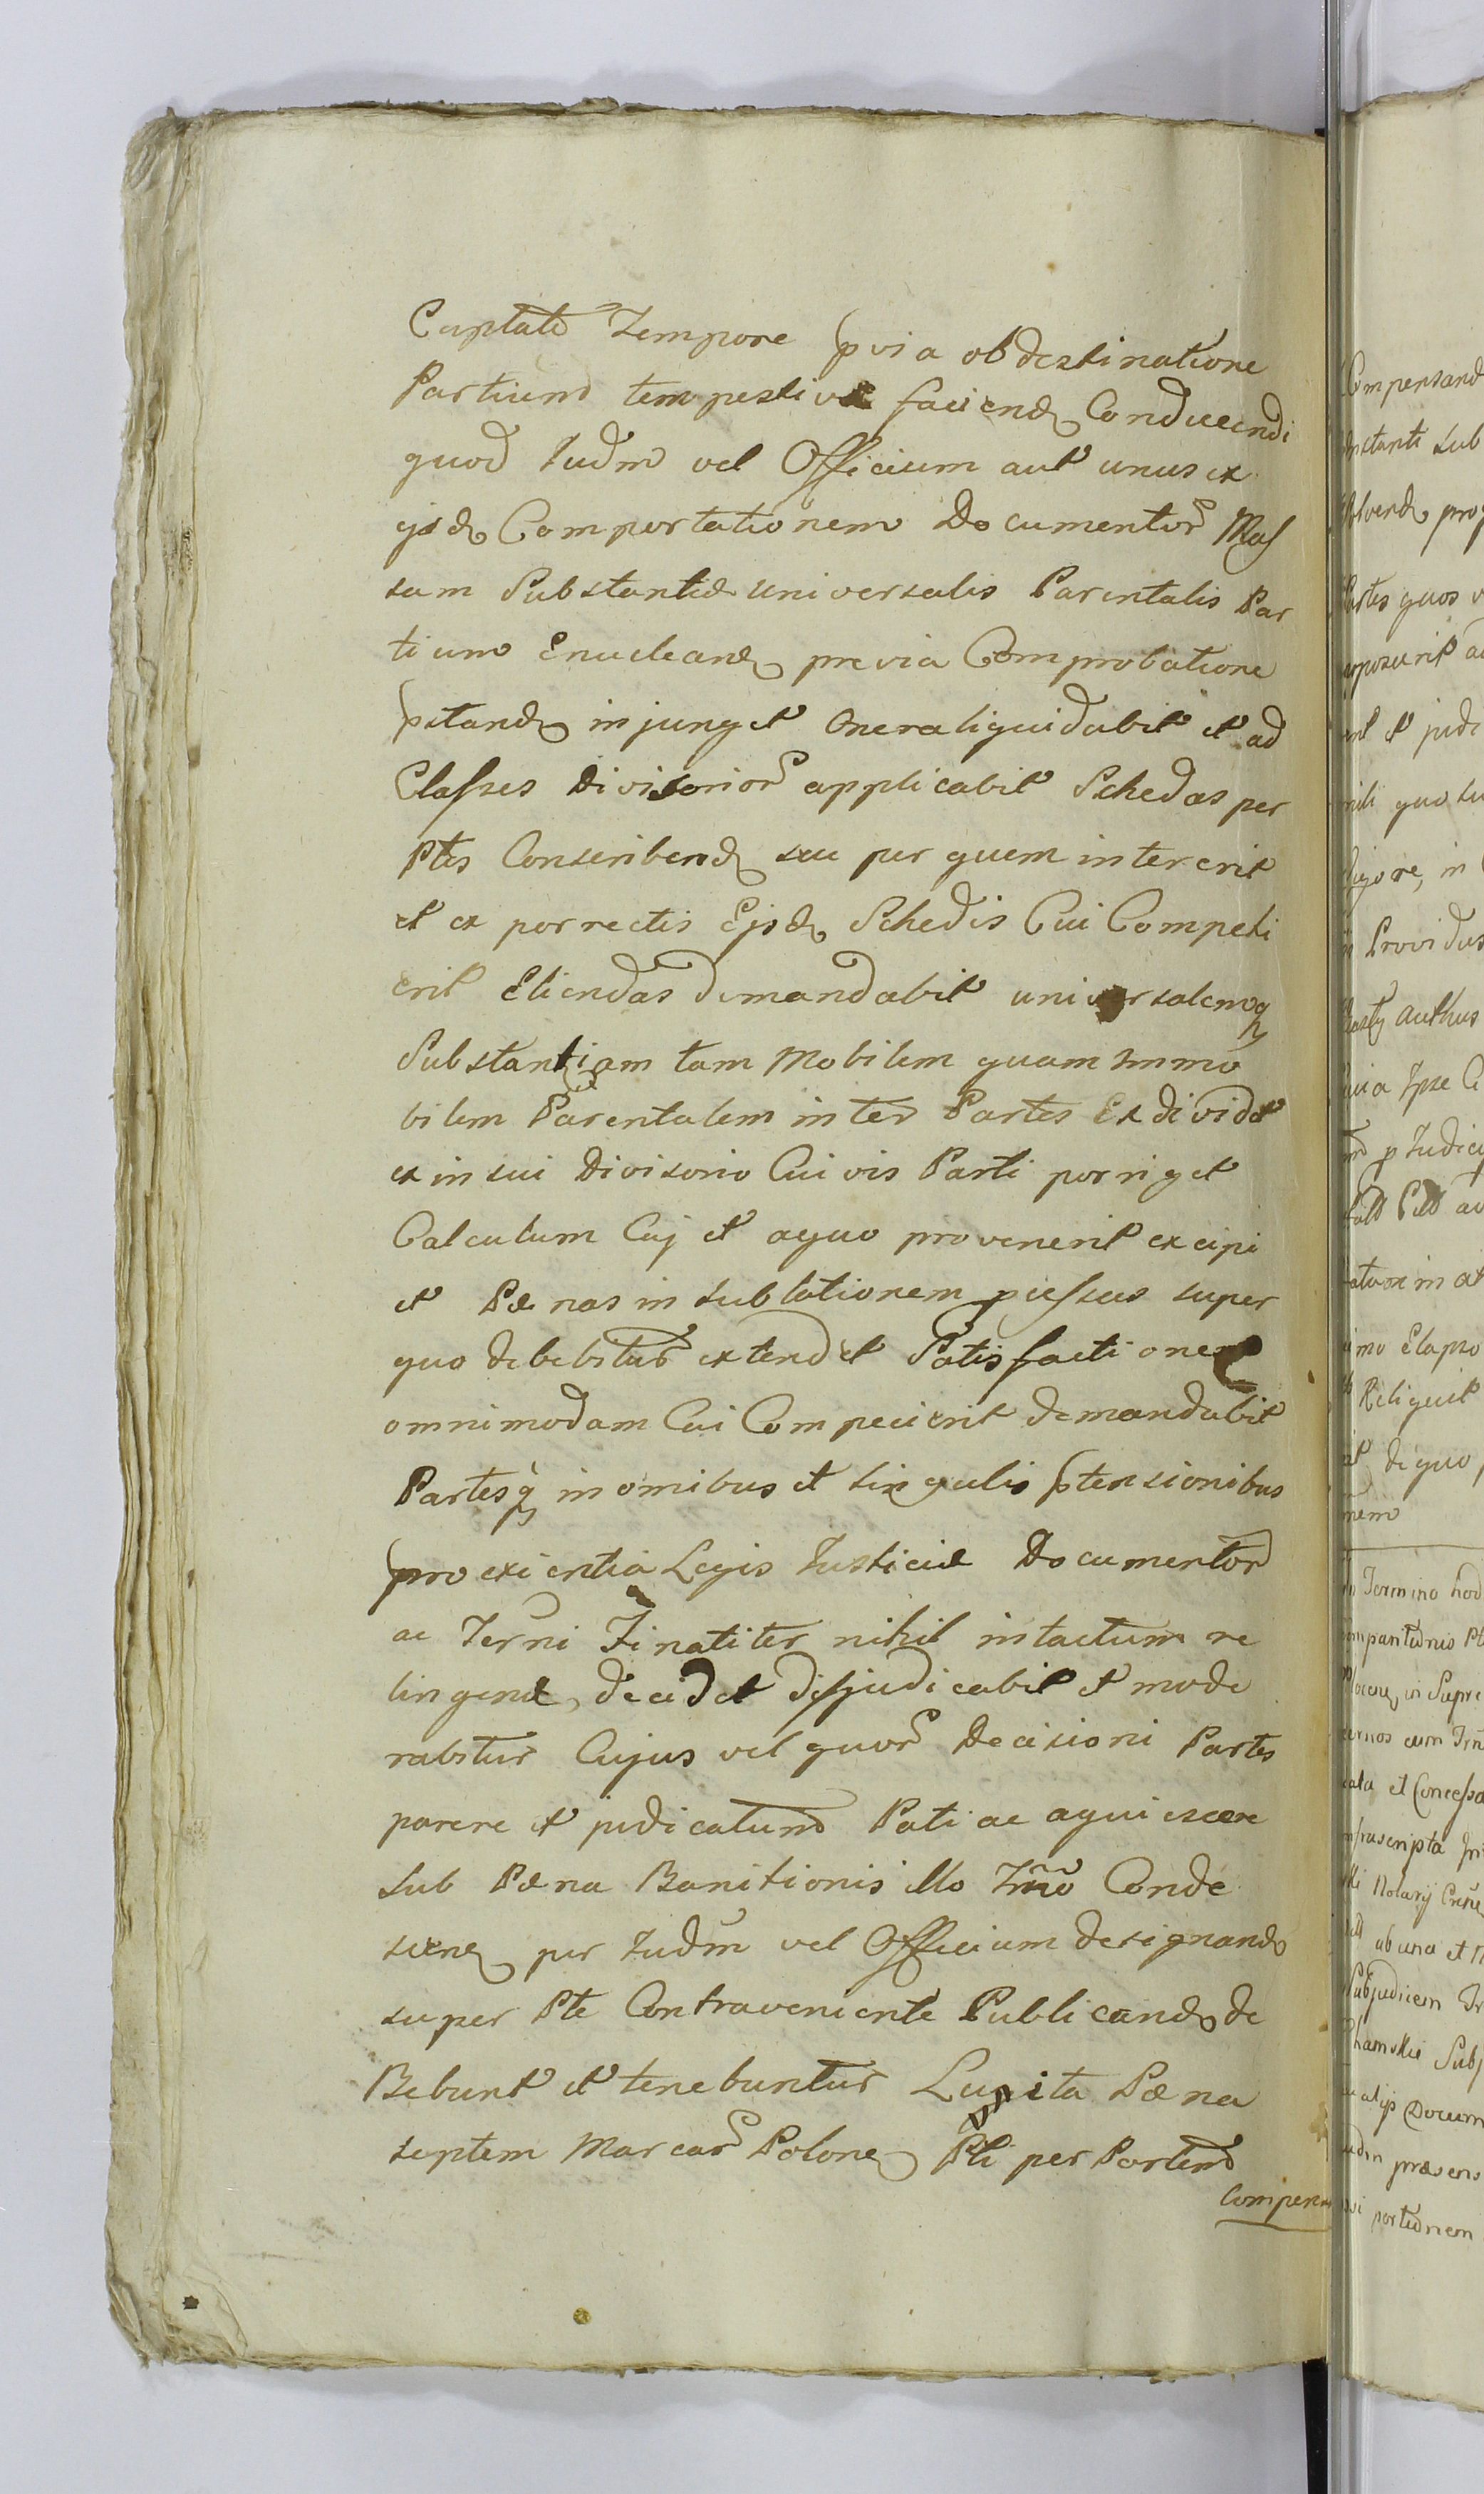 Captato Tempore pvia obdestinatione
Partium tempestivæ faciend Conducendi
quod Judm vel Officium aut unus ex
ijsd Comportationem Documentor Mas
sam Substantiæ universalis Parentalis Par
tium Enucleand previa Comprobatione
pstand injunget Onera liquidabit et ad
Classes Divisorior applicabit Schedas per
Ptes Conscribend seu per quem intererit
et ex porrectis Ejsd Schedis Cui Competi
erit Eliendas demandabit universalemq
Substantiam tam Mobilem quam Immo
bilem Parentalem inter Partes Exdividet
ex in sui Divisorio Cuivis Parti porriget
Calculum Cuj et aquo provenerit excipi
et Pænas in sublationem super
quo debebitur extendet Satisfactionem
omnimodam Cui Compecierit demandabit
Partesq in omnibus et singulis ptensionibus
pro exientia Legis Justiciæ Documentor
ac Terni Finatiter nihil intactum re
linqend, decidet disjudicabit et mode
rabitur Cujus vel quor Decisioni Partes
parere et judicatum Pati ac aquiescere
sub Pæna Banitionis illo Trno Conde
scen per Judm vel Officium designando
super Pte Contraveniente Publicand de
Bebunt et tenebuntur Luita Pæna
septem Marcar Polone Pti per Partem
Compens
Compensand
sub
prog
Partes quos
et jude
in
Providus
authus
Ipse
in
Elapso
Reliquit
de quo
Termino hod
in Supre
cum
et Concessa
Notarij
ab una et
Subjudicem
Docum
præsens